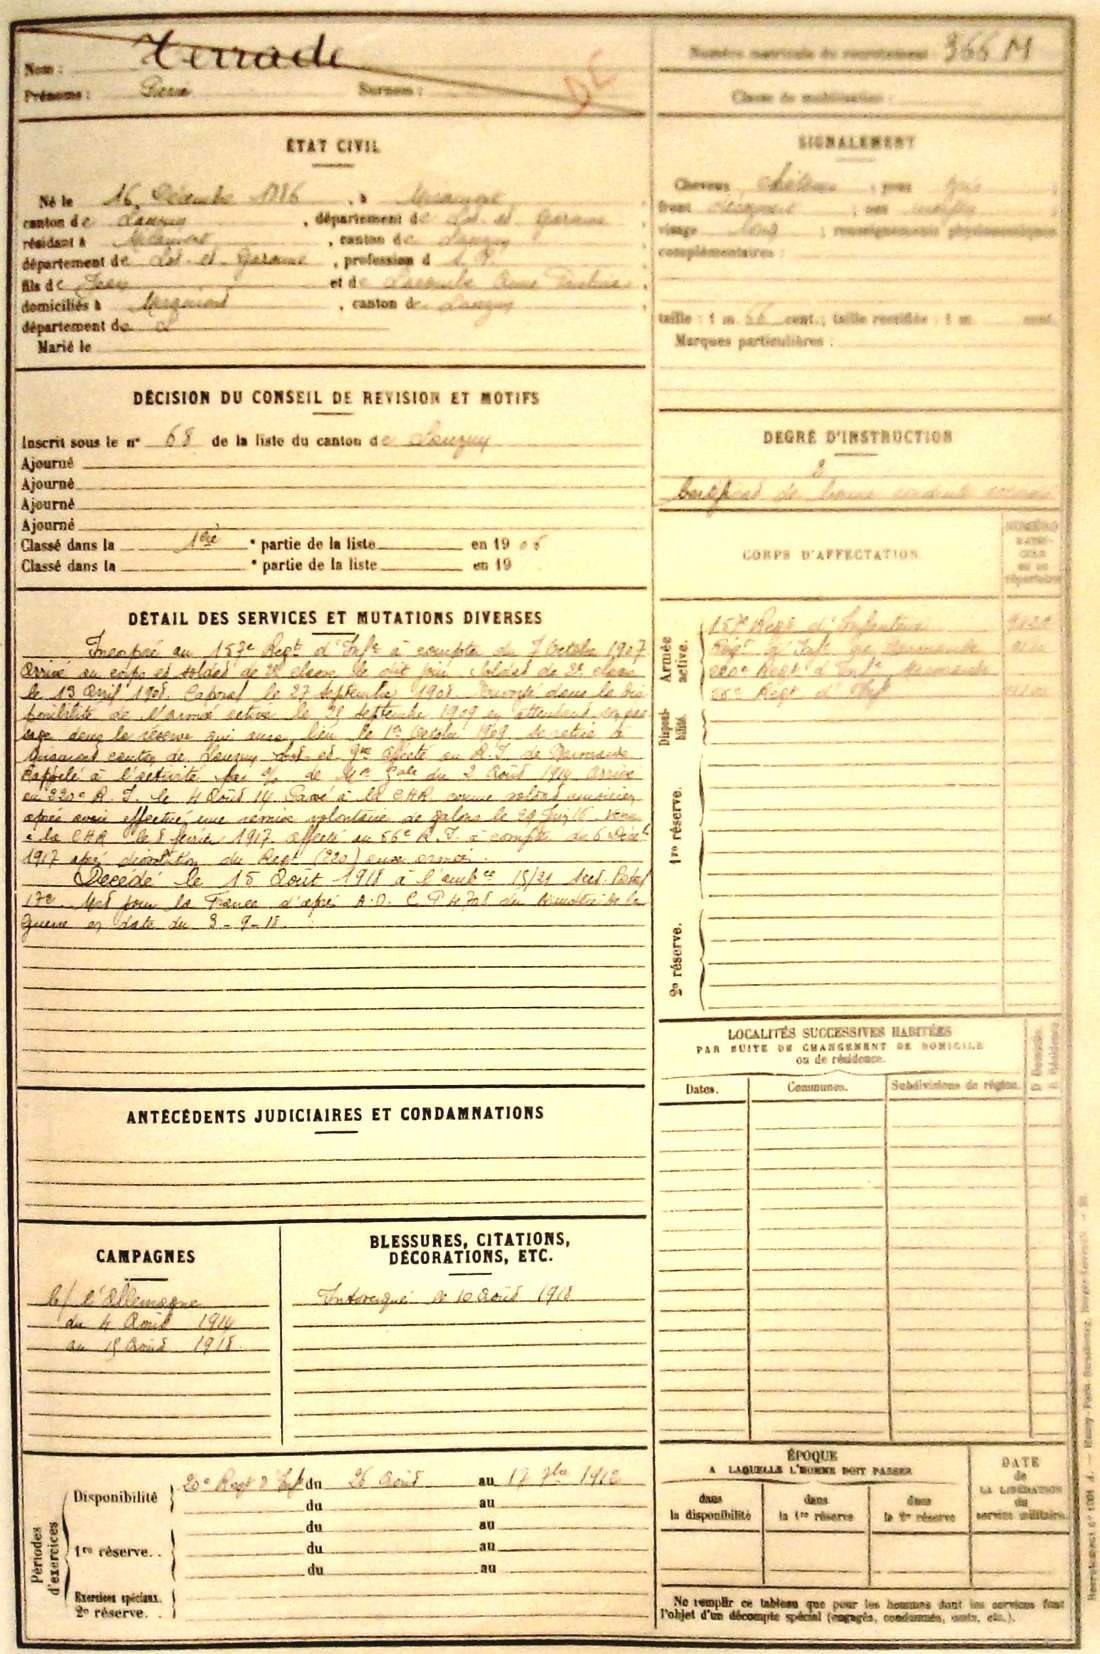 Nom : Terrade
Prénoms : Pierre Surnom :
DC
Numéro matricule du recrutement : 366 M
Classe de mobilisation :
ÉTAT CIVIL
Né le 16 Décembre 1886, à
canton de Lauzun, département de Lot et Garonne
résidant à, canton de Lauzun
département de Lot et Garonne, profession d
fils de Jean et de Lacombe Anne
domiciliés à, canton de Lauzun
département de
Marié le
SIGNALEMENT
Cheveux châtains ; yeux gris ;
front découvert ; nez moyen ;
visage long ; renseignements physionomiques
complémentaires :
taille : 1 m. 66 cent. ; taille rectifiée : 1 m. cent.
Marques particulières :
DÉCISION DU CONSEIL DE REVISION ET MOTIFS
Inscrit sous le n° 68 de la liste du canton de Lauzun
Ajourné
Ajourné
Ajourné
Ajourné
Classé dans la 1ère partie de la liste en 1906
Classé dans la partie de la liste en 19
DEGRÉ D'INSTRUCTION
3
de bonne conduite accordé
DÉTAIL DES SERVICES ET MUTATIONS DIVERSES
Incorporé au 157e Regt d'Infie à compter du 7 Octobre 1907
arrivé au corps et soldat de 2e classe le dit jour. Soldat de 2e classe
le 13 avril 1908. Caporal le 27 septembre 1908. Envoyé dans la dis
ponibilité de l'armée active le 25 septembre 1909 en attendant son pas
sage dans la réserve qui aura lieu le 1er Octobre 1909. Se retire à
canton de Lauzun Lot et Gne affecté au R.I. de Marmande
Rappelé à l'activité par de Mon Gale du 2 Août 1914 arrivé
au 220e R.I. le 4 Août 14. Passé à la CHR comme soldat musicien
après avoir effectué une remise volontaire de galons le 29 16.
à la CHR le 8 février 1917 affecté au 56e R.I. à compter du 6 Déce
1917 après dissolution du Regt (220) aux armées.
Décédé le 15 Août 1918 à l'ambce 15/21 Sect. Postal
17e. Mort pour la France d'après A.D. du Ministre de la
Guerre en date du 3-9-18.
CORPS D'AFFECTATION
NUMÉRO MATRICULE OU AU répertoire
Armée active.
157e Regt d'Infanterie
Regt d'Infie de Marmande
220e Regt d'Infie Marmande
56e Regt d'Infie
Disponibilité.
1re réserve.
2e réserve.
LOCALITÉS SUCCESSIVES HABITÉES
PAR SUITE DE CHANGEMENT DE DOMICILE
ou de résidence.
Dates. Communes. Subdivisions de région. D. Domicile. R. Résidence.
ANTÉCÉDENTS JUDICIAIRES ET CONDAMNATIONS
CAMPAGNES
C/ l'Allemagne
du 4 Août 1914
au 15 Août 1918.
BLESSURES, CITATIONS,
DÉCORATIONS, ETC.
Intoxiqué le 10 Août 1918
Périodes d'exercices
Disponibilité 20e Regt d'Infie du 26 Août au 17 7bre 1912
du au
du au
1re réserve. . du au
du au
Exercices spéciaux.
2e réserve. .
ÉPOQUE
A LAQUELLE L'HOMME DOIT PASSER
dans la disponibilité
dans la 1re réserve
dans la 2e réserve
DATE de LA LIBÉRATION du service militaire.
Ne remplir ce tableau que pour les hommes dont les services font
l'objet d'un décompte spécial (engagés, condamnés, omis, etc.).